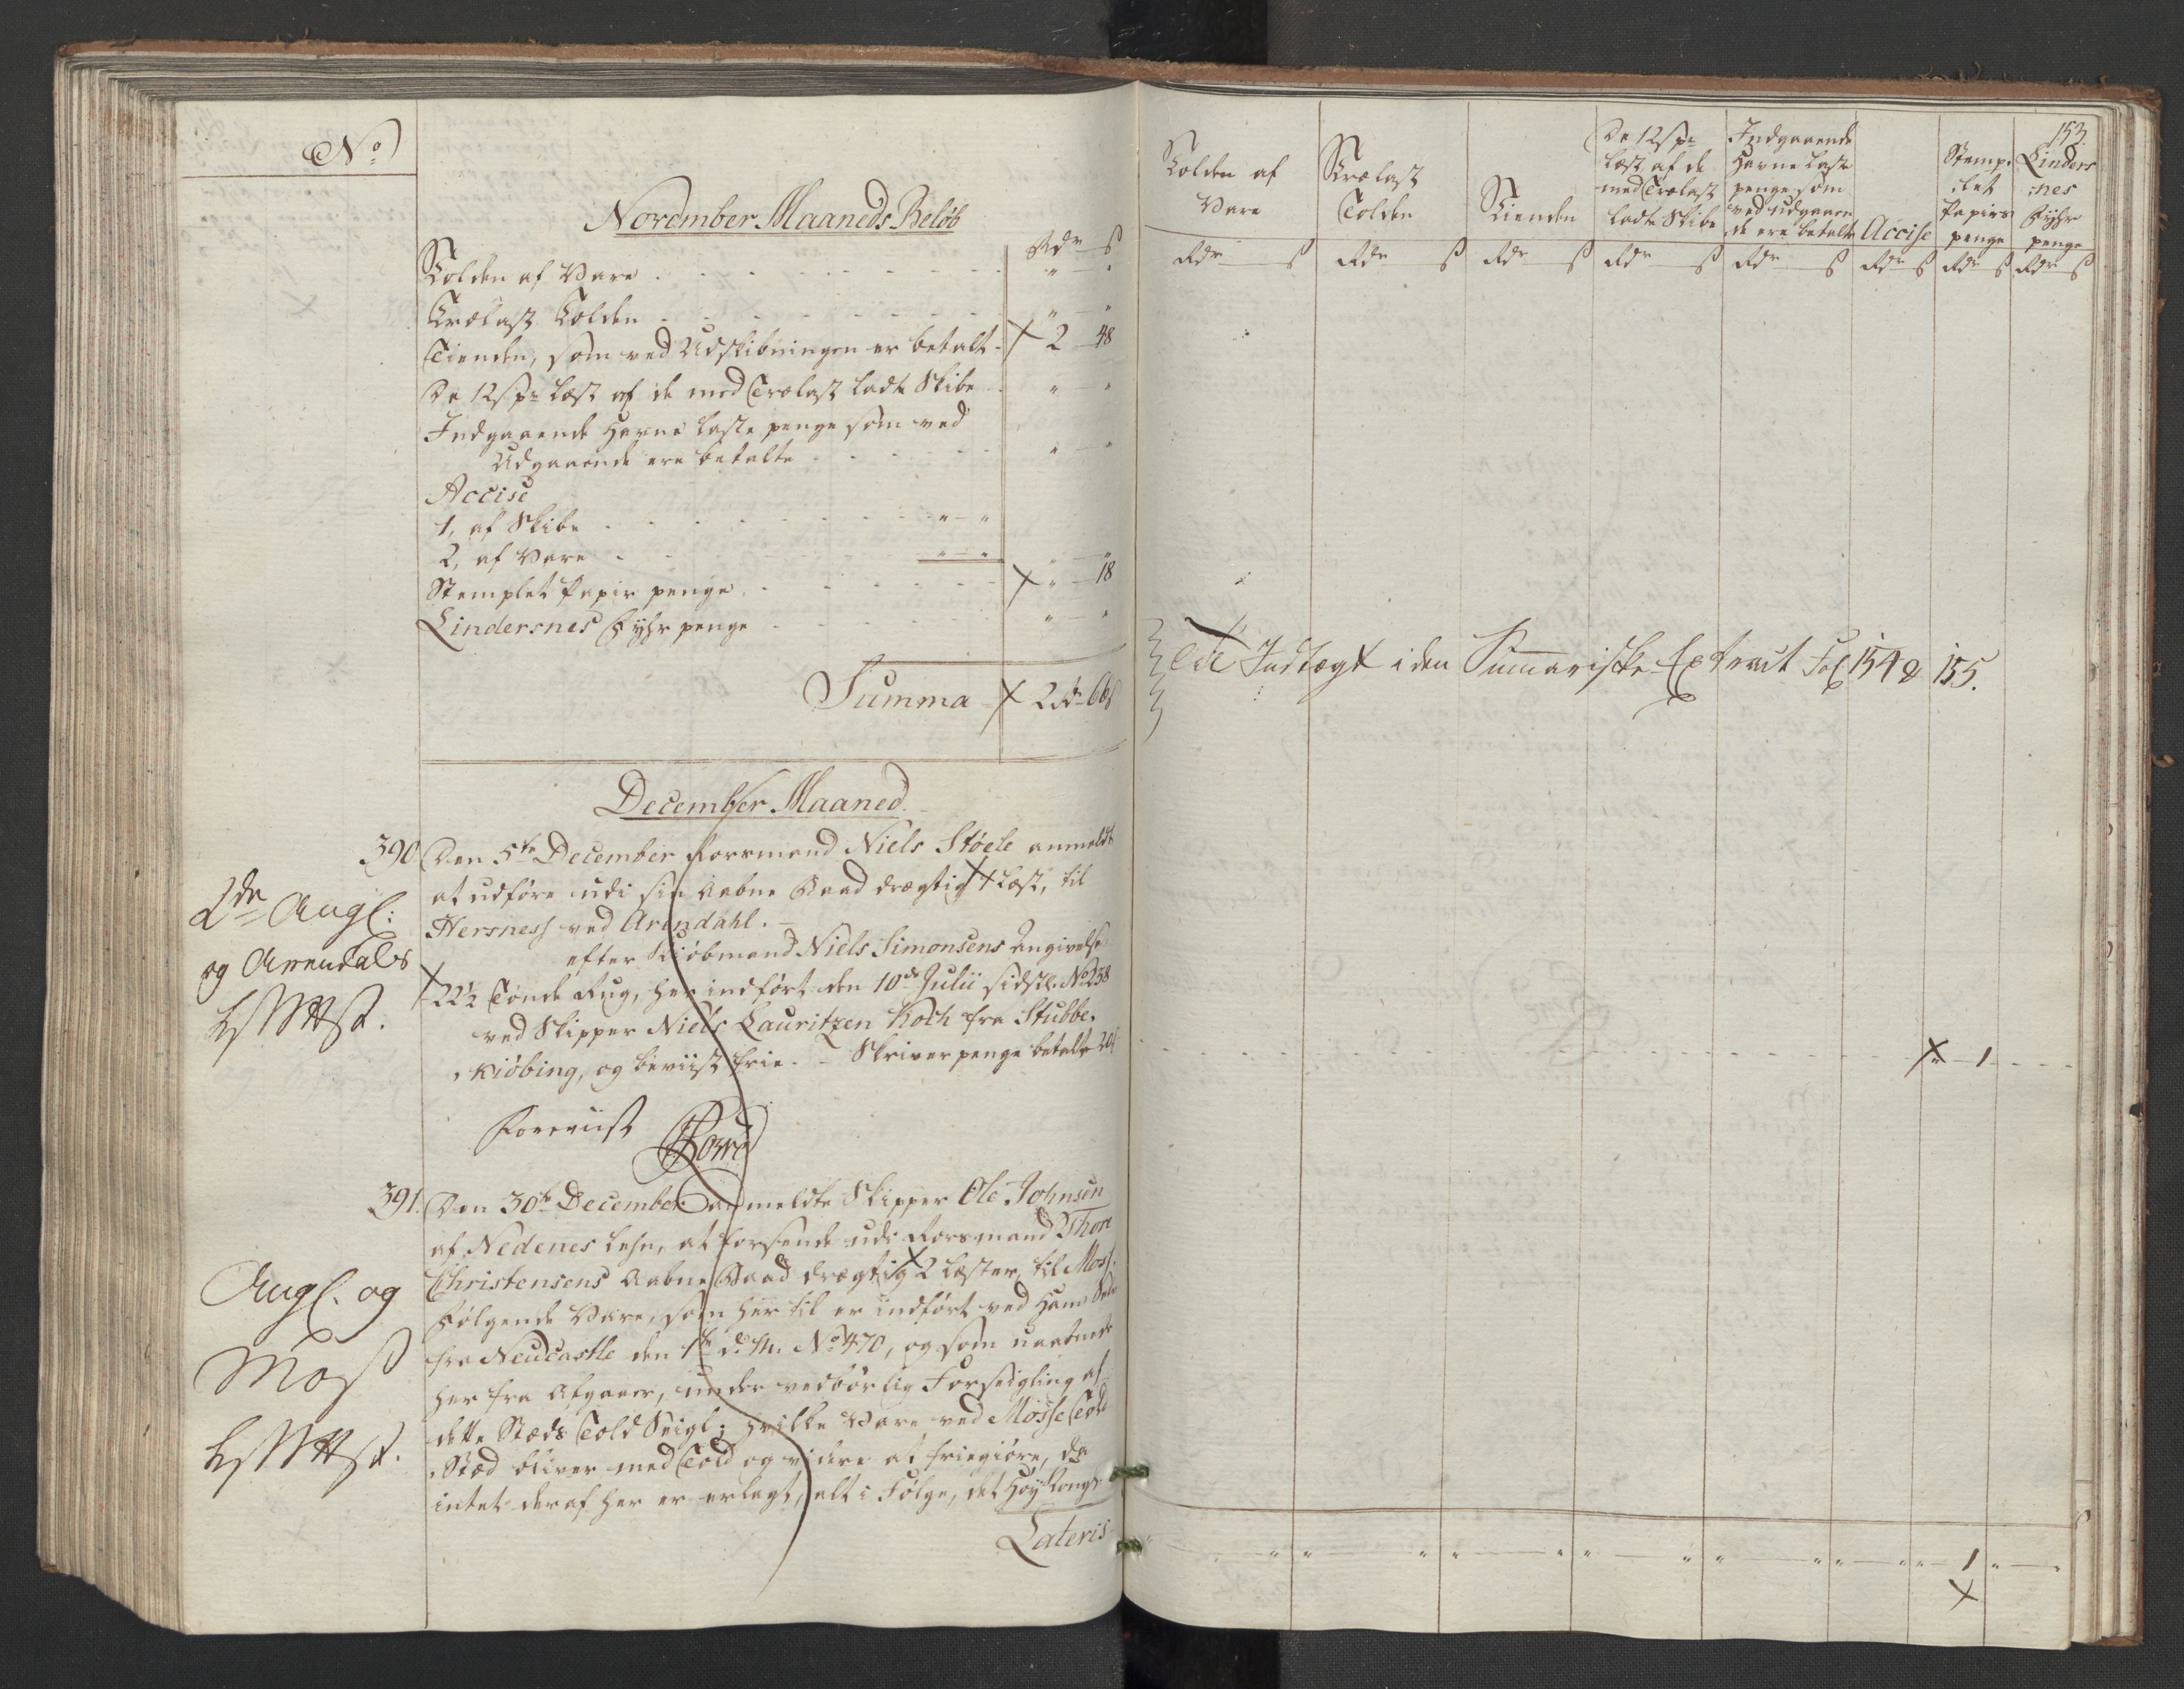 No
November Maaneds Beløb
Rdr ß
Tolden af Vare
Trælast Tolden
Tienden, som ved Udskibningen er betalt 2 48
De 12 ß pr Læst af de med Trælast ladte Skibe
Indgaaende Havne Laste penge som ved
Udgaaende ere betalte
Accise
1, af Skibe
2, af Vare
Stemplet Papir penge 18
Lindersnes Fyhr penge
Summa 2 Rdr 66 ß
December Maaned.
390 Den 5te December Forsmand Niels Støele anmeldt
at udføre udi sin aabne Baad drægtig 1 Læst, til
Hersness ved Arendahl.
efter Kiöbmand Niels Simonsens Angivelse
22½ Tønde Rug, her indført den 10de Julii sidstl. No 238
ved Skipper Niels Lauritzen Koch fra Stubbe-
kiöbing, og beviist frie. Skriver penge betalte 20 ß
Foreviist
2de Angl:
og Arendals
391. Den 30te December anmeldte Skipper Ole Johnsen
af Nedenes Lehn, at forsende udi Forsmand Thore
Christensens aabne Baad drægtig 2 Læster, til Moss.
Følgende Vare, som her til er indført ved Ham Selv
fra Neucastle den 1te d: M: No 470, og som uaabnede
her fra Afgaaer, under vedbörlig Forseigling af
dette Stæds Told Seigl; hvilke Vare ved Mosse Told
Stæd bliver med Told og videre at friegiöre, da
intet deraf her er erlagt, alt i Følge, det Høy Kongl.
Angl. og
Moss
Lateris
153.
Tolden af
Vare
Trælast
Tolden
Tienden
De 12 ß pr
Læst af de
med Trælast
ladte Skibe
Indgaaende
Havne Laste
penge som
ved udgaaen
de ere betalte
Accise
Stemp-
let
Papirs
penge
Linders
nes
Fyhr
penge
Rdr ß Rdr ß Rdr ß Rdr ß Rdr ß Rdr ß Rdr ß Rdr ß
Indtægt i den Summariske Extract Fol 154 & 155.
1
1